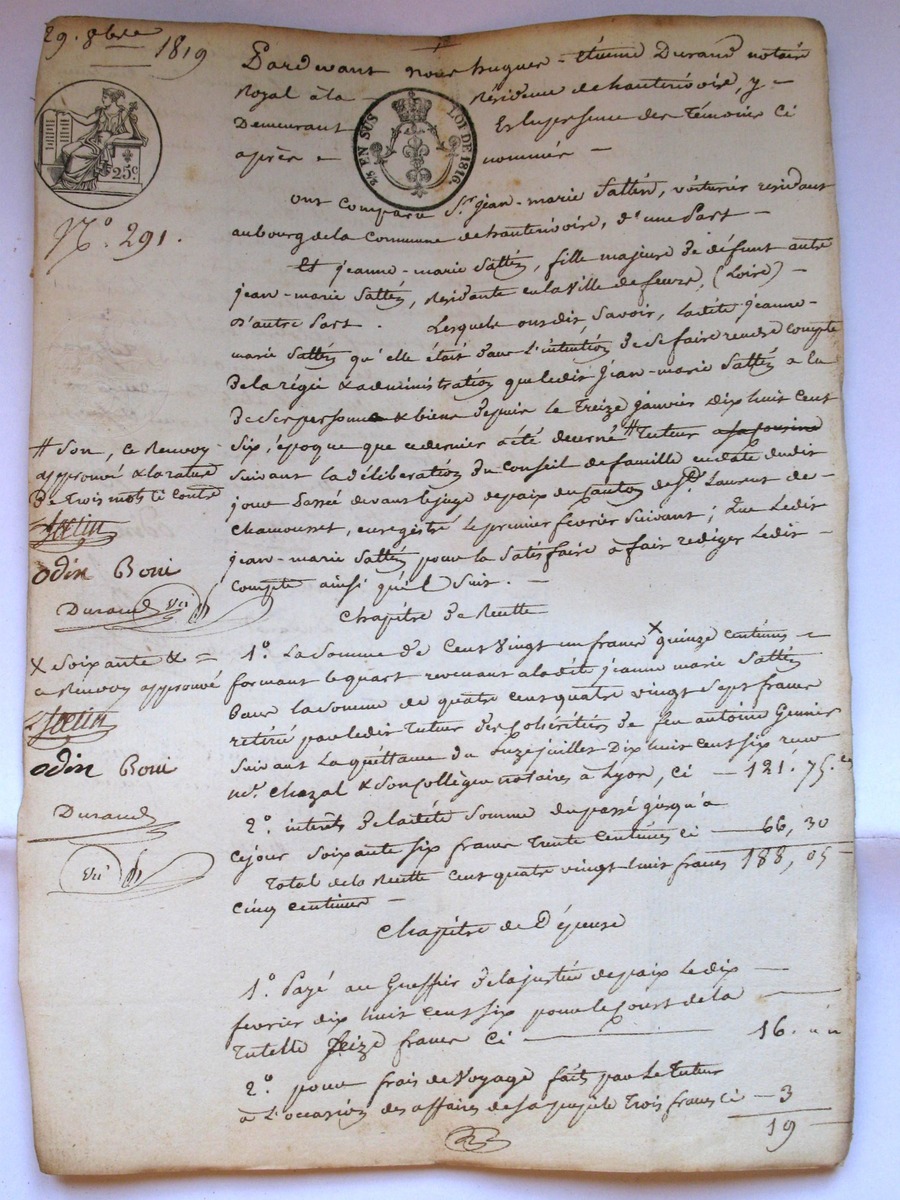 29. 8bre 1819
25 EN SUS LOI DE 1816.
25c.
No. 291.
Pardevant nous hugues-étienne Durand notaire
Royal à la Résidence de hauterivoire, y
Demeurant Et en presence des Témoins ci
après nommés
ont comparu Sr. jean-marie Sattin, voiturier residant
au bourg de la Commune de hauterivoire, d'une Part
Et jeanne-marie Sattin, fille majeure de défunt autre
jean-marie Sattin, Résidante en la ville de feurs, (Loire)
D'autre Part. Lesquels ont dit, Savoir, ladite jeanne-
marie Sattin qu'elle était dans l'intention de se faire rendre compte
De la régie & administration que ledit jean-marie Sattin a eu
De ses personne & biens depuis le Treize janvier dix huit cent
Six, époque que ce dernier a été décerné # Tuteur a sa cousine
Suivant la délibération du Conseil de famille en date dudit
jour Passée devant le juge de paix du Canton de St. Laurent de
Chamousset, enregistré le premier février Suivant; Que Ledit
jean-marie Sattin pour la Satisfaire a fait rediger Ledit
Compte ainsi qu'il Suit.
# Son, ce Renvoy
approuvé & la rature
De Trois mots ci contre
odin Boni
Durand
Chapitre de Recette
1o. La Somme de Cent Vingt un francs x quinze centimes
formant le quart revenant a ladite jeanne marie Sattin
Dans la Somme de quatre cent quatre vingt Sept francs
retiré par ledit Tuteur des cohéritiers de feu antoine
Suivant La quittance du juillet Dix huit cent Six reçu
me. Chazal & Son Collègue notaires à Lyon, Ci 121. 75.c
x Soixante &
ce Renvoy approuvé
odin Boni
Durand
2o. intérêts de ladite Somme du passé jusqu'à
ce jour Soixante Six francs Trente Centimes ci 66, 30
Total de la Recette Cent quatre vingt huit francs 188, 05
Cinq centimes
Chapitre de Dépense
1o. Payé au Greffier de la justice de paix Le dix
février dix huit cent Six pour le cout de la
Tutelle Seize francs Ci 16. " "
2o. pour frais de Voyage faits par Le Tuteur
à L'occasion des affaires de Sa pupile Trois francs ci 3
19